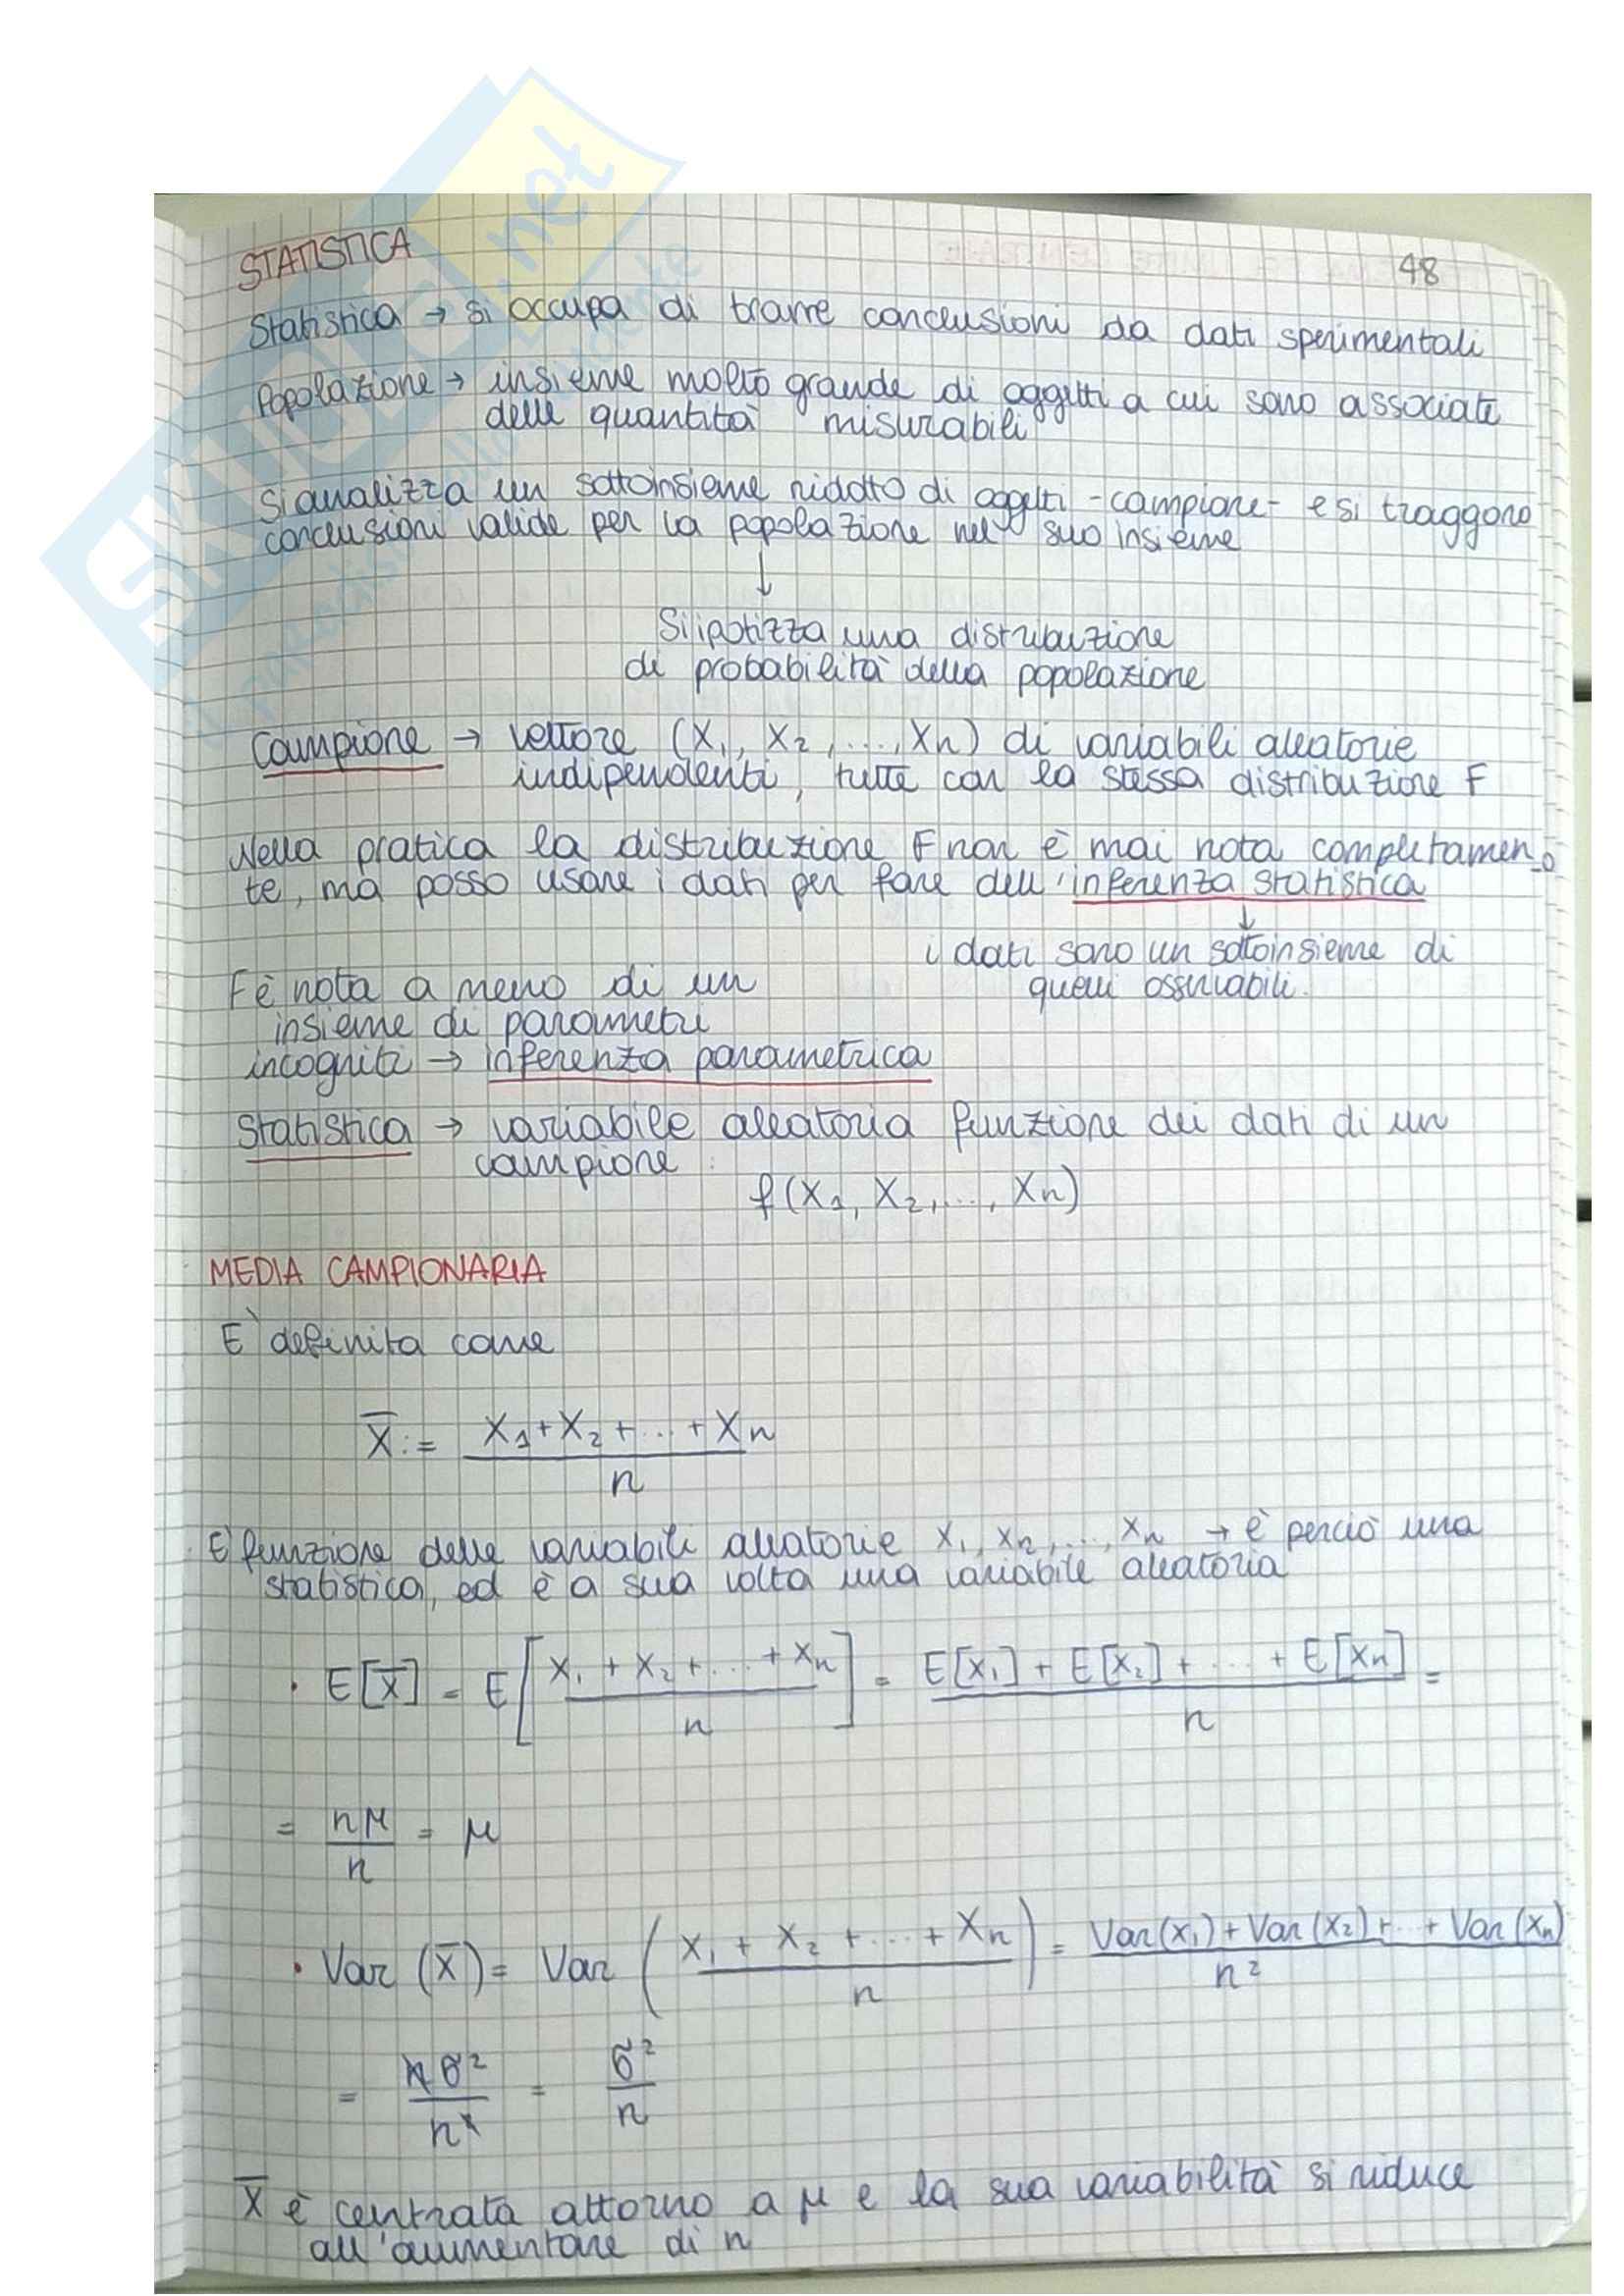 SKUOLA.net
il paradiso dello studente
STATISTICA
48
Statistica → si occupa di trarre conclusioni da dati sperimentali
Popolazione → insieme molto grande di oggetti a cui sono associate
delle quantità misurabili
Si analizza un sottoinsieme ridotto di oggetti - campione - e si traggono
conclusioni valide per la popolazione nel suo insieme
↓
Si ipotizza una distribuzione
di probabilità della popolazione
Campione → vettore (X₁, X₂, ..., Xn) di variabili aleatorie
indipendenti, tutte con la stessa distribuzione F
Nella pratica la distribuzione F non è mai nota completamen-
te, ma posso usare i dati per fare dell'inferenza statistica
↓
i dati sono un sottoinsieme di
quelli osservabili.
F è nota a meno di un
insieme di parametri
incogniti → inferenza parametrica
Statistica → variabile aleatoria funzione dei dati di un
campione :
f(X₁, X₂, ..., Xn)
MEDIA CAMPIONARIA
E' definita come
X̄ := (X₁ + X₂ + ... + Xn) / n
E' funzione delle variabili aleatorie X₁, X₂, ..., Xn → è perciò una
statistica, ed è a sua volta una variabile aleatoria
· E[X̄] = E[(X₁ + X₂ + ... + Xn) / n] = (E[X₁] + E[X₂] + ... + E[Xn]) / n =
= nμ / n = μ
· Var (X̄) = Var ((X₁ + X₂ + ... + Xn) / n) = (Var(X₁) + Var(X₂) + ... + Var(Xn)) / n²
= nσ² / n² = σ² / n
X̄ è centrata attorno a μ e la sua variabilità si riduce
all'aumentare di n